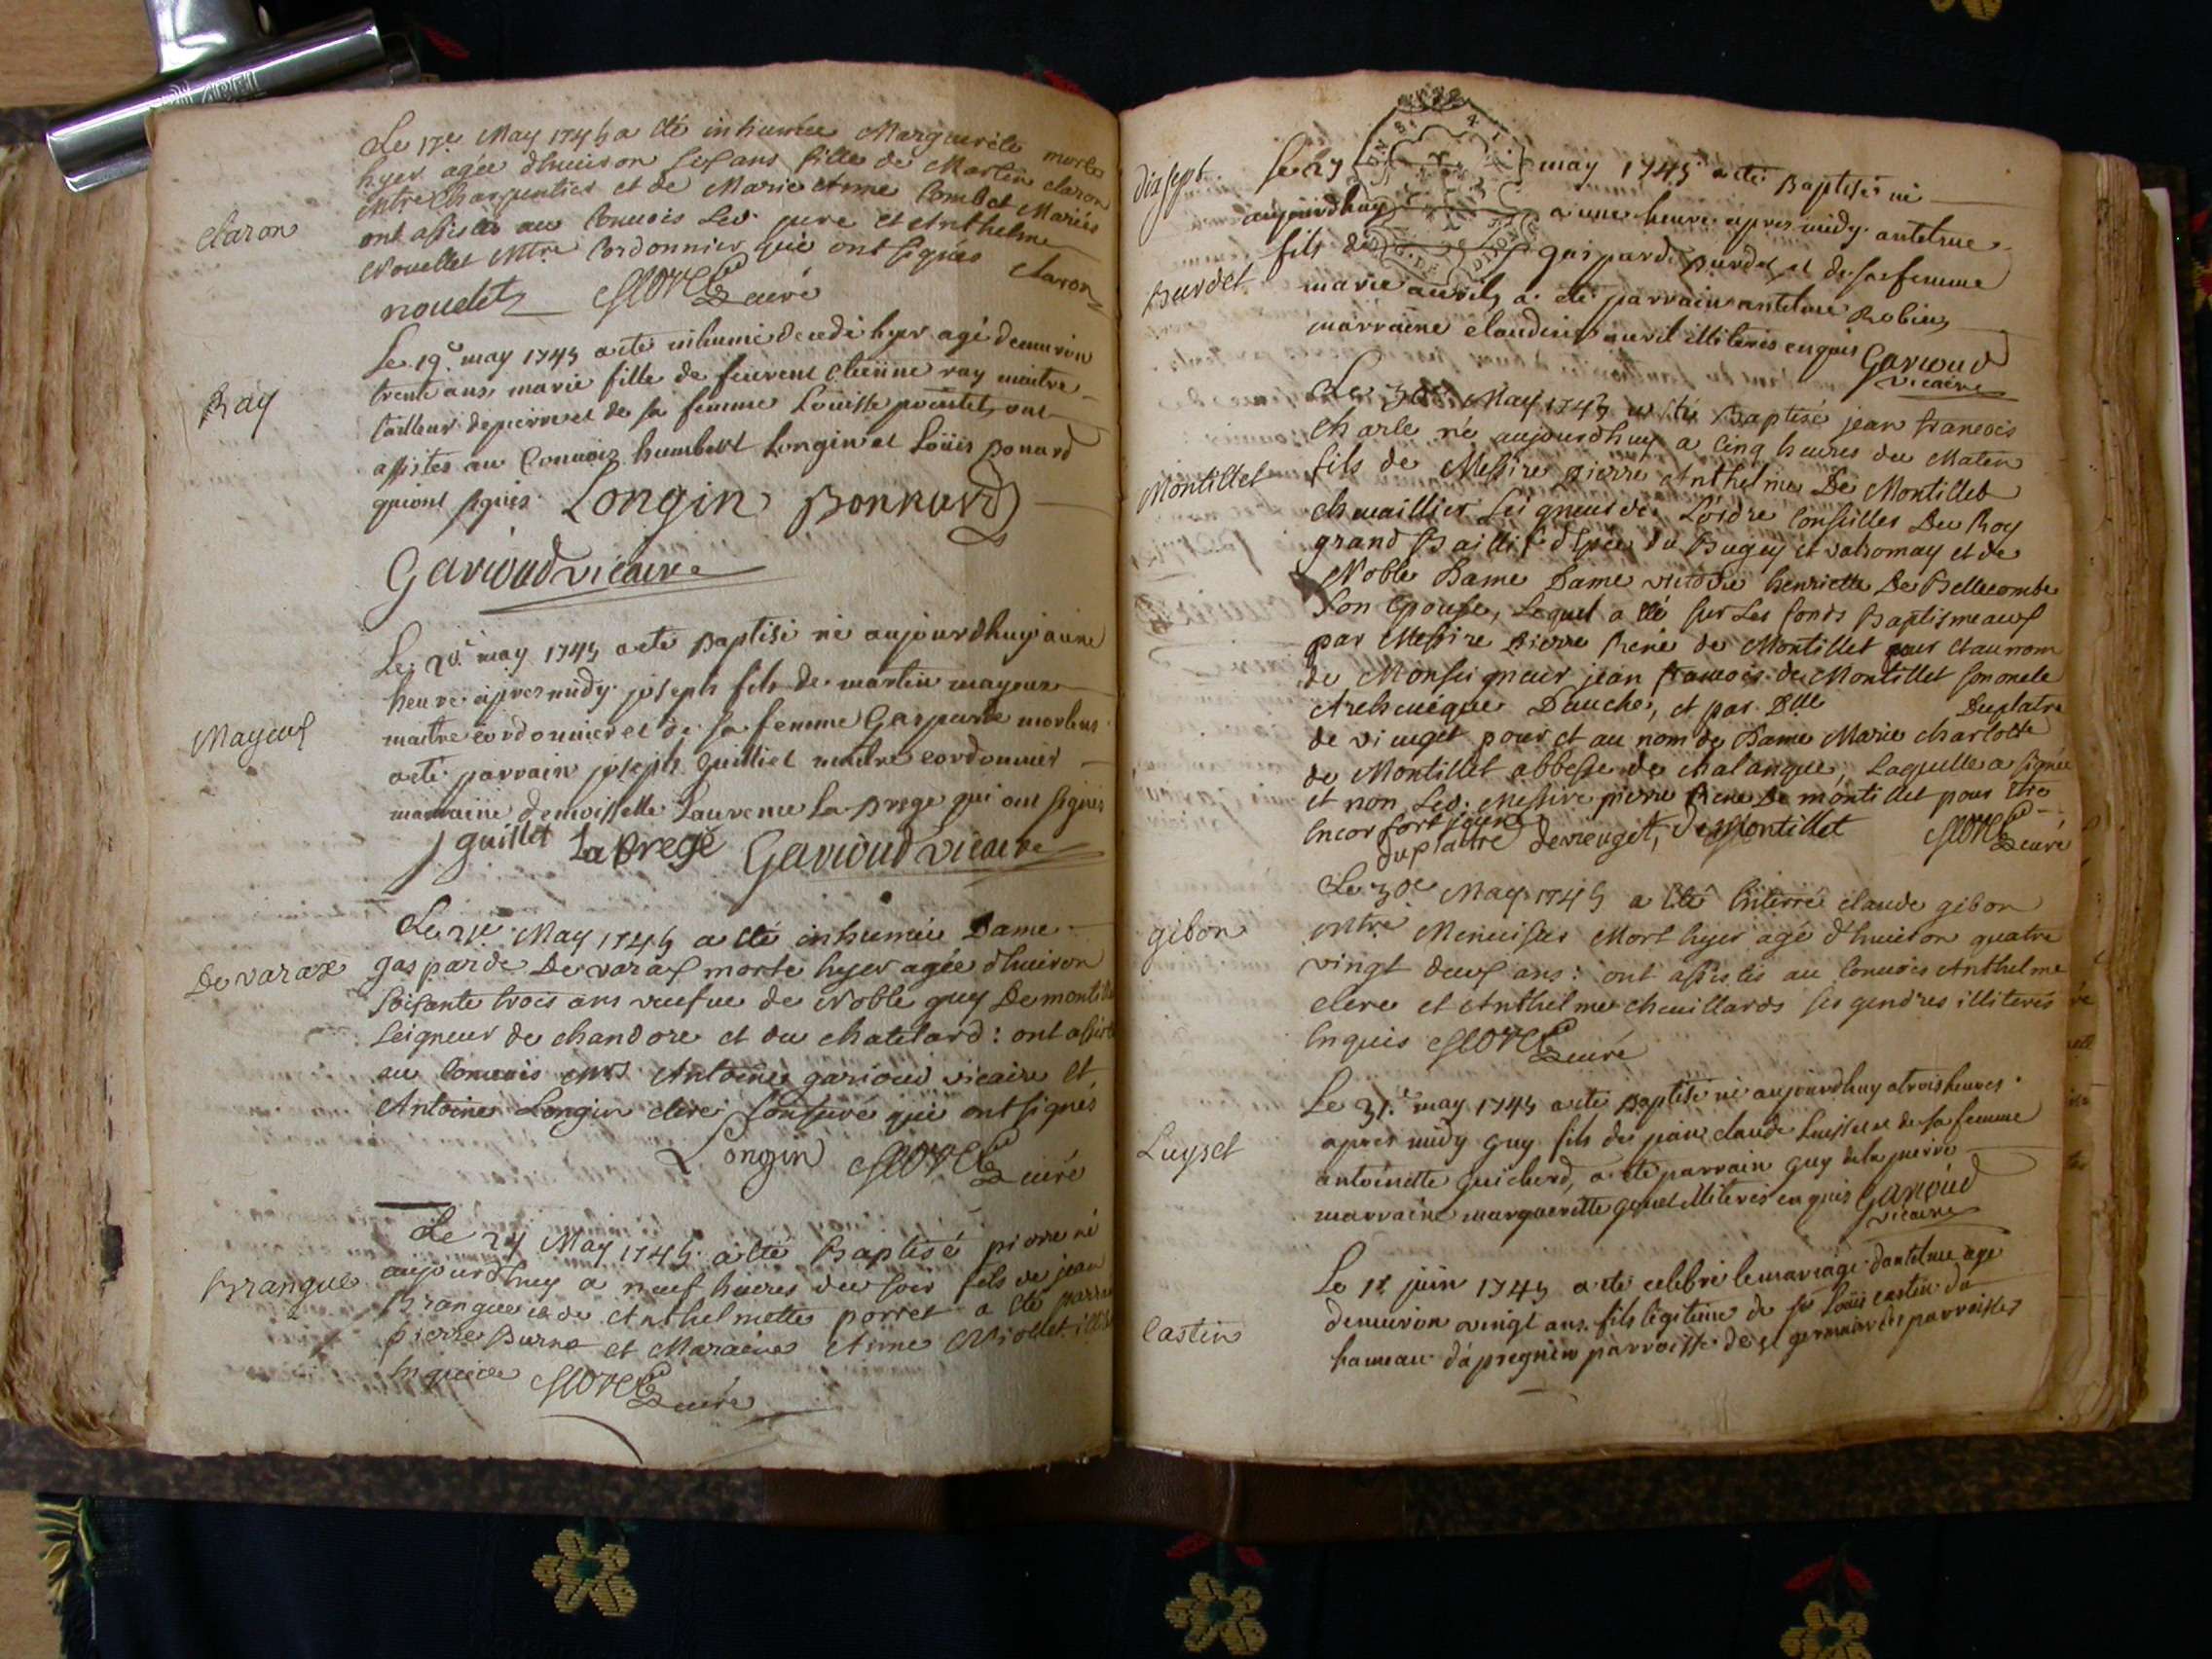 Le 17e May 1745 a été inhumée Marguerite morte
hyer agée dhuiron sept ans fille de Martin claron
Mtre Charpentier et de Marie Anne Combet Mariés
ont assistés au Convois Led. pere et Anthelme
Nouellet Mtre Cordonnier qui ont signés claron
claron
nouelet curé
Le 19e may 1745 a eté inhumé decedé hyer agé denuiron
Ray
trente ans marie fille de feu etienne ray maitre
tailleur de pierre et de sa femme Louisse pointet, ont
assistes au Convoiz humbert Longin et Loüis Bonard
qui ont signés. Longin Bonnard
Garioud vicaire
Le 20e may 1745 a eté Baptisé né aujourdhuy a une
heure apres midy joseph fils de martin mayeux
Mayeux
maitre cordonnier et de sa femme Gasparde
a eté parrain joseph guilliet maitre cordonnier
marraine demoisselle Laurence La prege qui ont signés
j guillet La prege Garioud vicaire
Le 21e May 1745 a eté inhumée Dame
De varax
gasparde De varax morte hyer agée dhuiron
soisante trois ans veufue de Noble guy De montil
seigneur de chandore et du chatelard : ont assist
au Conuois Mrs Antoine garioud vicaire et
Antoine Longin clerc Tonsuré qui ont signés
Longin curé
Le 24 May 1745 a été Baptisé pierre né
Brangue
aujourdhuy a neuf heures du soir fils de jean
Brangue et de Anthelmette porret a été parra
pierre Burne et Maraine Anne Violet
Enquise curé
dix sept. Le 29 may 1745 a eté Baptisé né
aujourdhuy a une heure apres midy antelme
Burdet
fils de gaspard Burdet et de sa femme
marie auril, a eté parrain antelme Robin,
marraine claudine auril illiterés enquis Garioud
vicaire
Le 30e May 1745 a été Baptisé jean francois
charle né aujourdhuy a Cinq heures du Matin
Montillet
fils de Messire pierre Anthelme De Montillet
cheuaillier seigneur de Conseiller Du Roy
grand Baillif dépée du Bugey et valromay et de
Noble Dame Dame henriette De Bellecombe
son Epouse, Lequel a été sur Les fonds Baptismeaux
par Messire Pierre René de Montillet pour et au nom
de Monseigneur jean francois de Montillet son oncle
Archeuéque Dauche, et par Dlle Duplatre
de vieuget pour et au nom de Dame Marie charlotte
de Montillet abbesse de chalangue, Laquelle a signée
et non Led. Messire pierre René De montillet pour être
Encor fort jeune
duplattre devieuget, de Montillet curé
Le 30e May 1745 a été Enterré claude gibon
gibon
Mtre Menuisier Mort hyer agé d'huiron quatre
vingt deux ans : ont assistés au Conuois Anthelme
clerc et Anthelme cheuillard ses gendres illiterés
Enquis curé
Le 31e may 1745 a eté Baptisé né aujourdhuy a trois heures
Luyset
apres midy guy fils de jean claude Luisset et de sa femme
antoinette guicherd, a eté parrain guy de la pierre
marraine marguerite illiterés enquis Garioud
vicaire
Le 1r juin 1745 a eté celebré le mariage dantelme agé
Castin
denuiron vingt ans. fils legitime de Loüis castin du
hameau dapregnin parroisse de st germain les parroisses